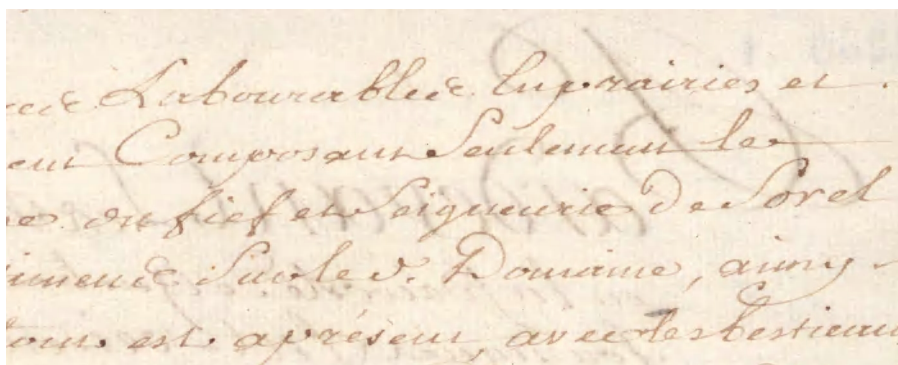 Labourablee. En prairies et
ent Composant Seulement le
du fief et Seigneurie De Sorel
timene Sur led. Domaine, ainsy
tout est apresent, avec les bestiaux